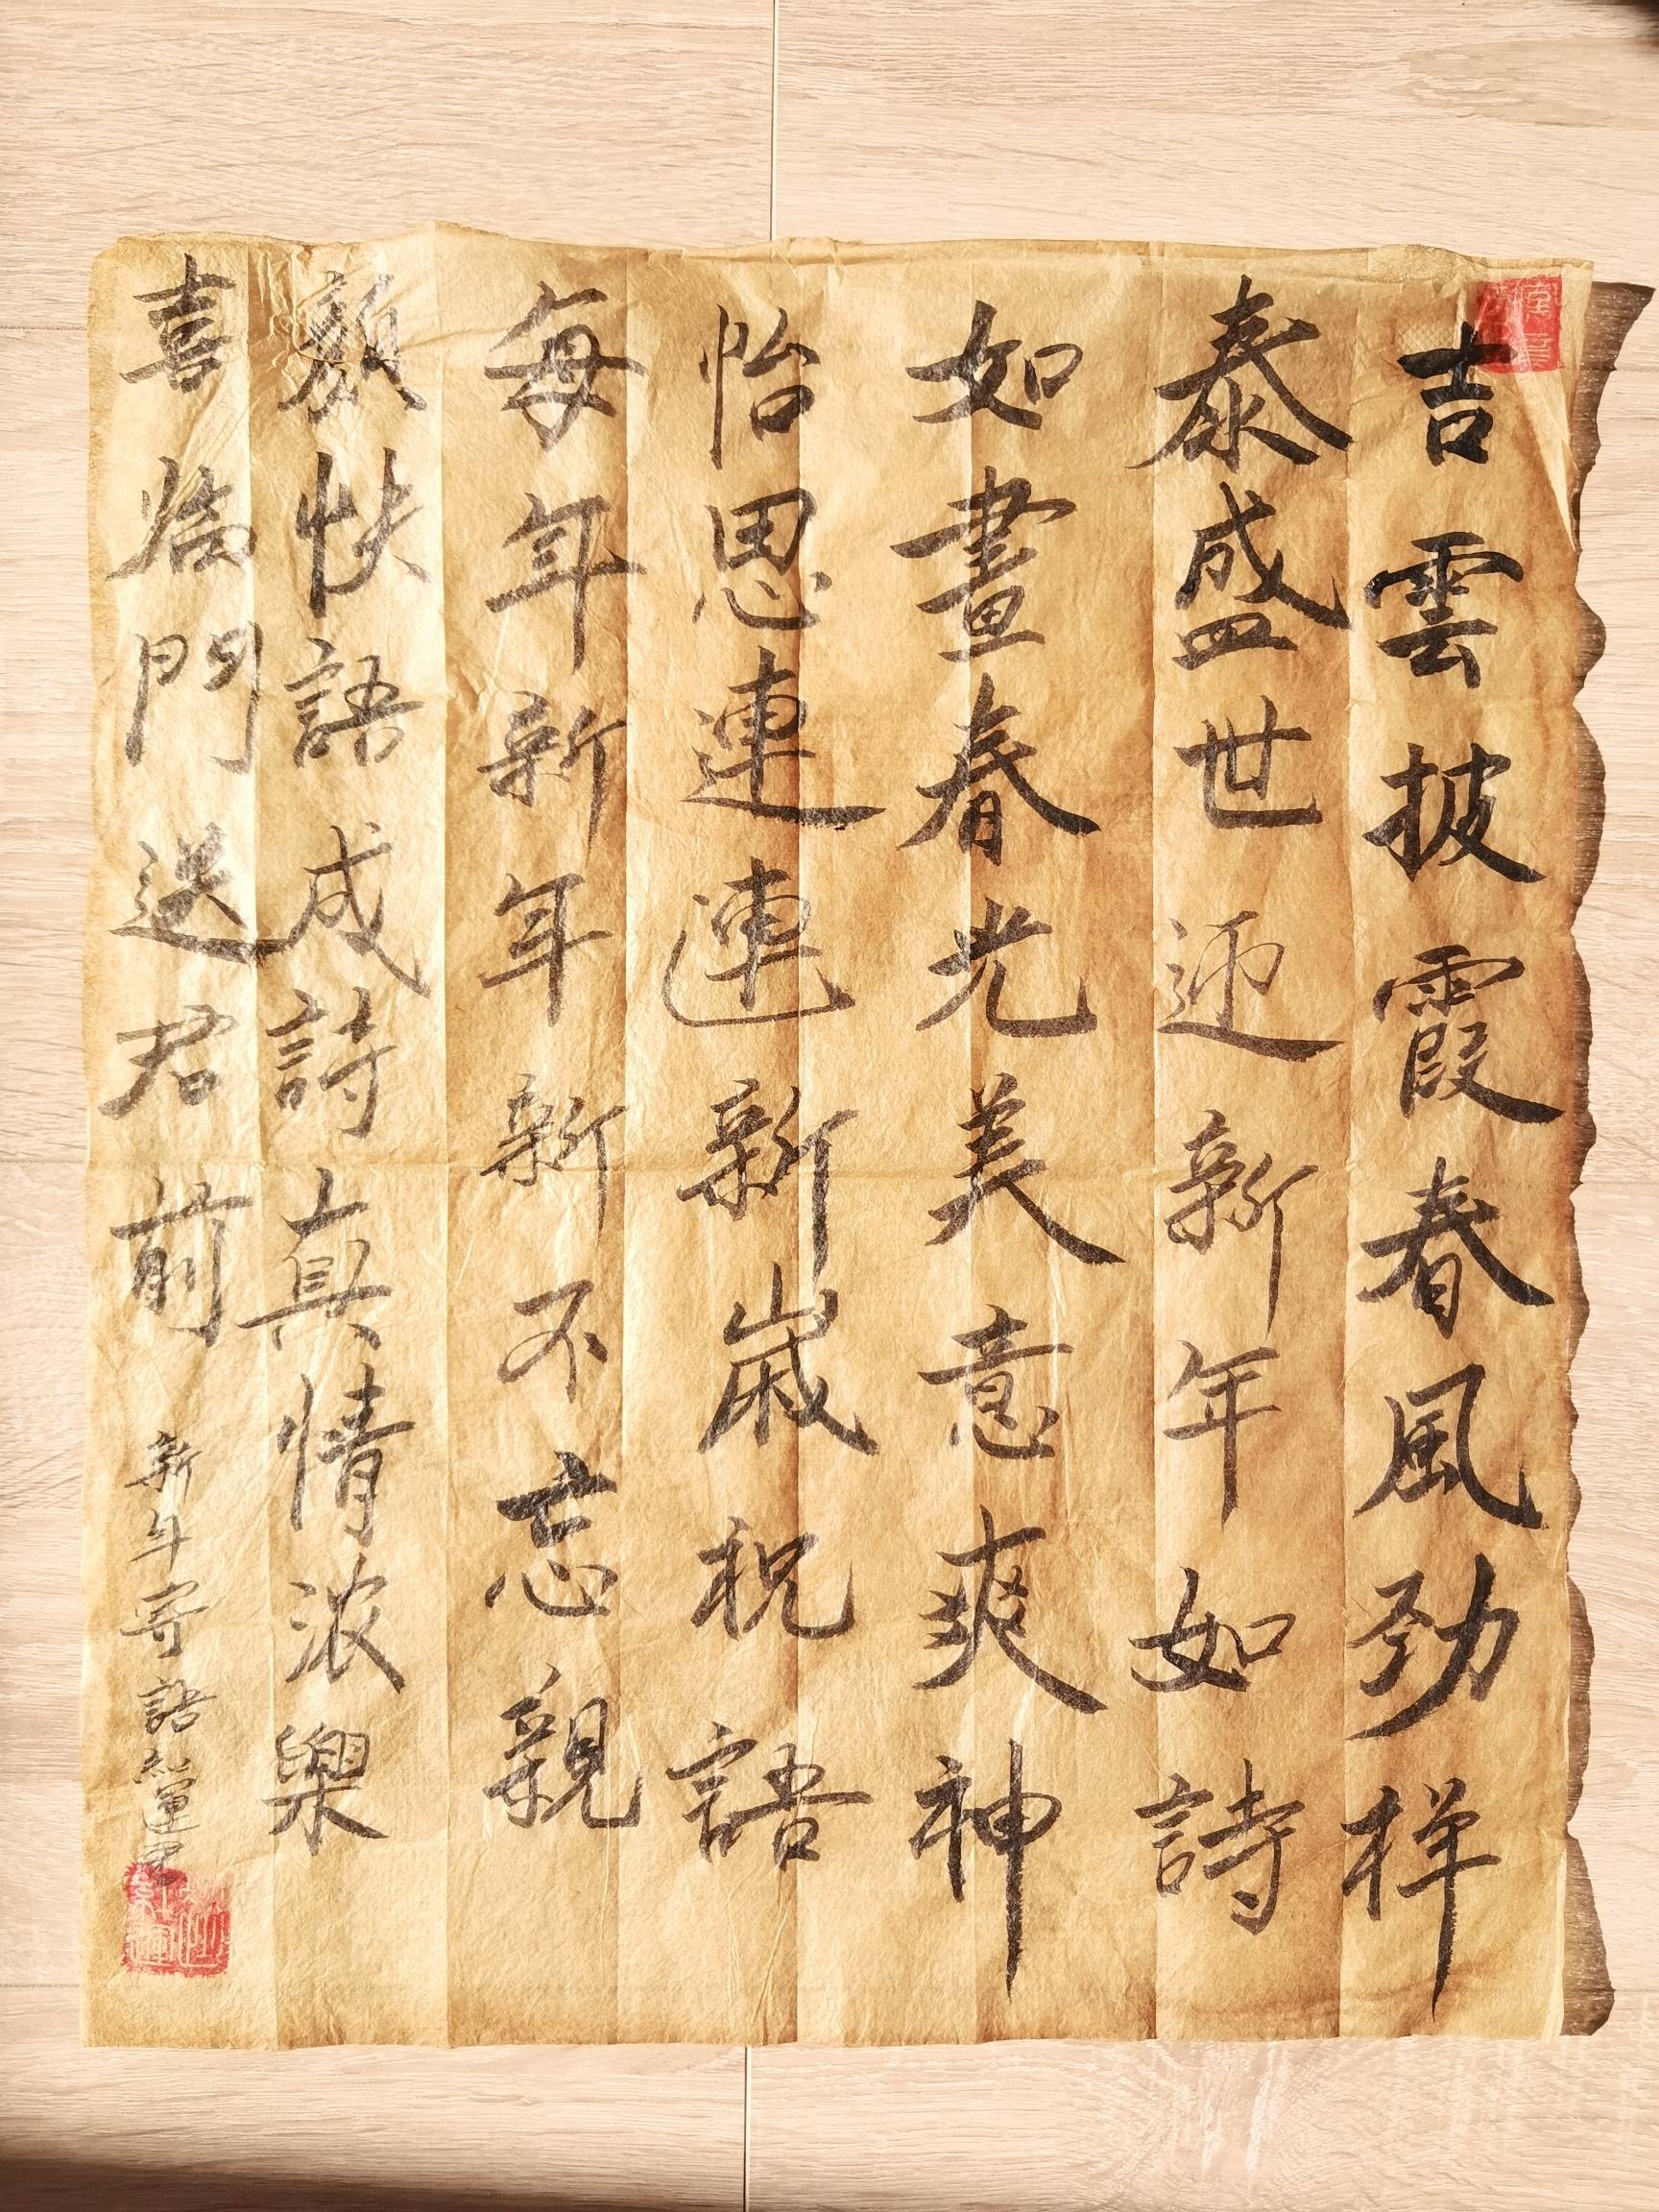 吉雲披霞春風勁祥
泰盛世迎新年如詩
如畫春光美意爽神
怡思連連新歲祝語
每年新年新不忘親
顏快語成詩真情浓樂
喜臨門送君前
新年寄語